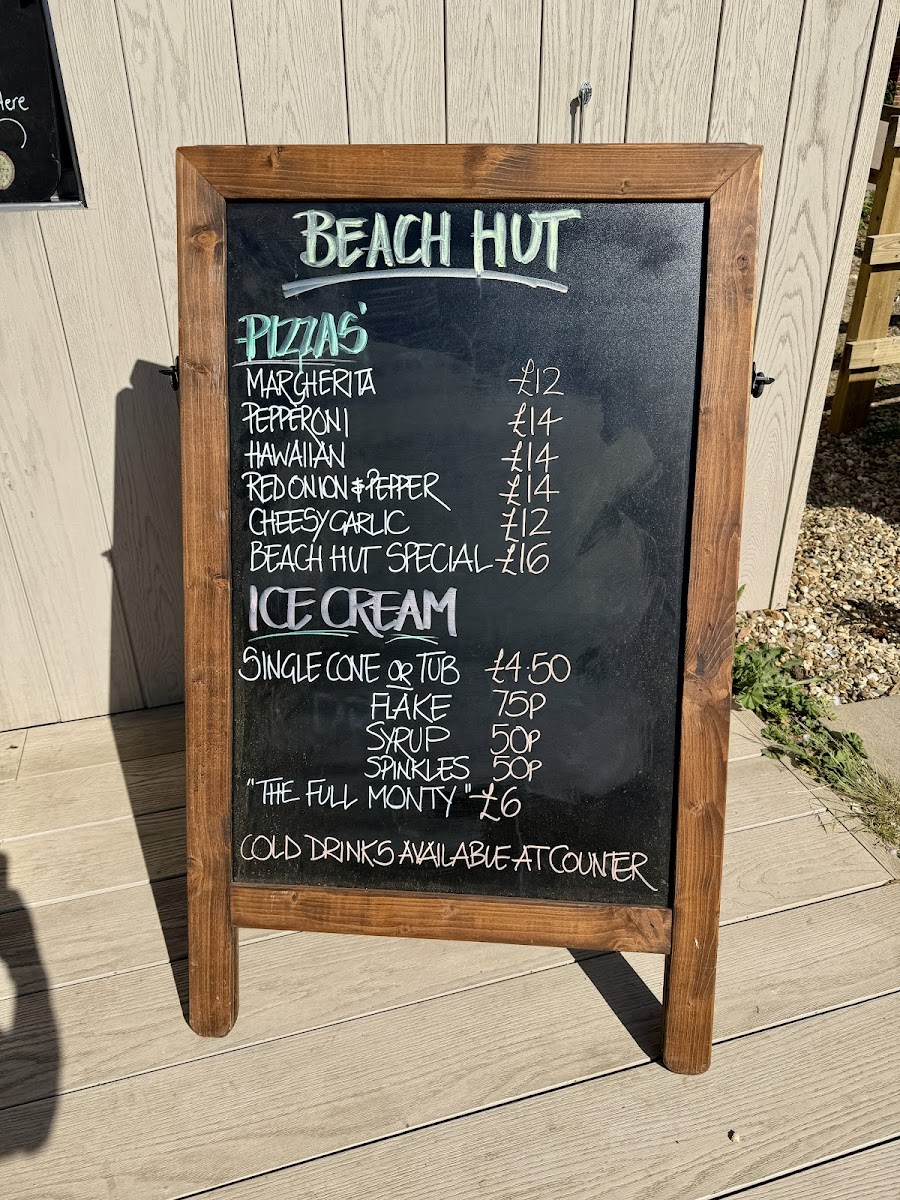 Here
BEACH HUT
PIZZAS'
MARGHERITA £12
PEPPERONI £14
HAWAIIAN £14
RED ONION & PEPPER £14
CHEESY GARLIC £12
BEACH HUT SPECIAL £16
ICE CREAM
SINGLE CONE OR TUB £4.50
FLAKE 75P
SYRUP 50P
SPINKLES 50P
"THE FULL MONTY" £6
COLD DRINKS AVAILABLE AT COUNTER